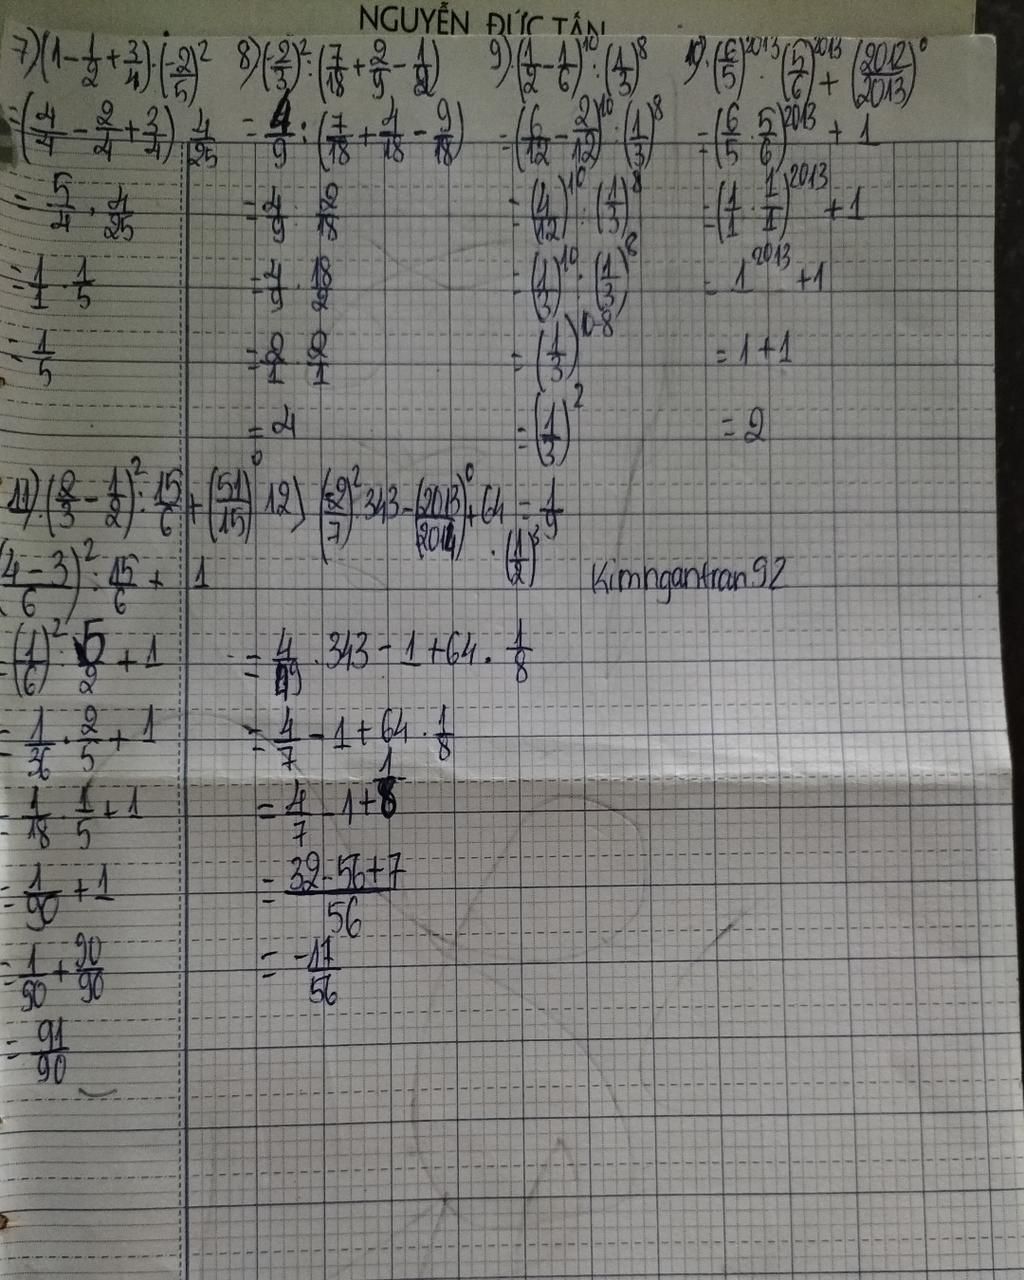 NGUYỄN ĐỨC TẤN
7) (1 - 1/2 + 3/4) · (-2/5)^2
= (4/4 - 2/4 + 3/4) · 4/25
= 5/4 · 4/25
= 1/1 · 1/5
= 1/5
8) (-2/3)^2 : (7/18 + 2/9 - 1/2)
= 4/9 : (7/18 + 4/18 - 9/18)
= 4/9 : 2/18
= 4/9 · 18/2
= 2/1 · 2/1
= 4
9) (1/2 - 1/6)^10 : (1/3)^8
= (6/12 - 2/12)^10 : (1/3)^8
= (4/12)^10 : (1/3)^8
= (1/3)^10 : (1/3)^8
= (1/3)^10-8
= (1/3)^2
= 1/9
10) (6/5)^2013 · (5/6)^2013 + (2012/2013)^0
= (6/5 · 5/6)^2013 + 1
= (1/1 · 1/1)^2013 + 1
= 1^2013 + 1
= 1 + 1
= 2
11) (2/3 - 1/2)^2 : 15/6 + (51/15)^0
(4 - 3/6)^2 : 15/6 + 1
= (1/6)^2 : 5/2 + 1
= 1/36 · 2/5 + 1
= 1/18 · 1/5 + 1
= 1/90 + 1
= 1/90 + 90/90
= 91/90
12) (-2/7)^2 · 343 - (2013/2014)^0 + 64 · (1/2)^3
= 4/49 · 343 - 1 + 64 · 1/8
= 4/7 - 1 + 64 · 1/8
= 4/7 - 1 + 1/8
= 32 - 56 + 7/56
= -17/56
Kimngantran92